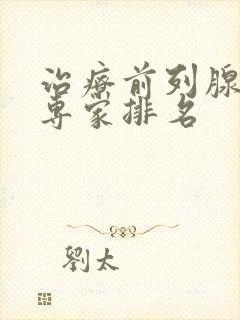 治療前列腺
専家排名
劉太